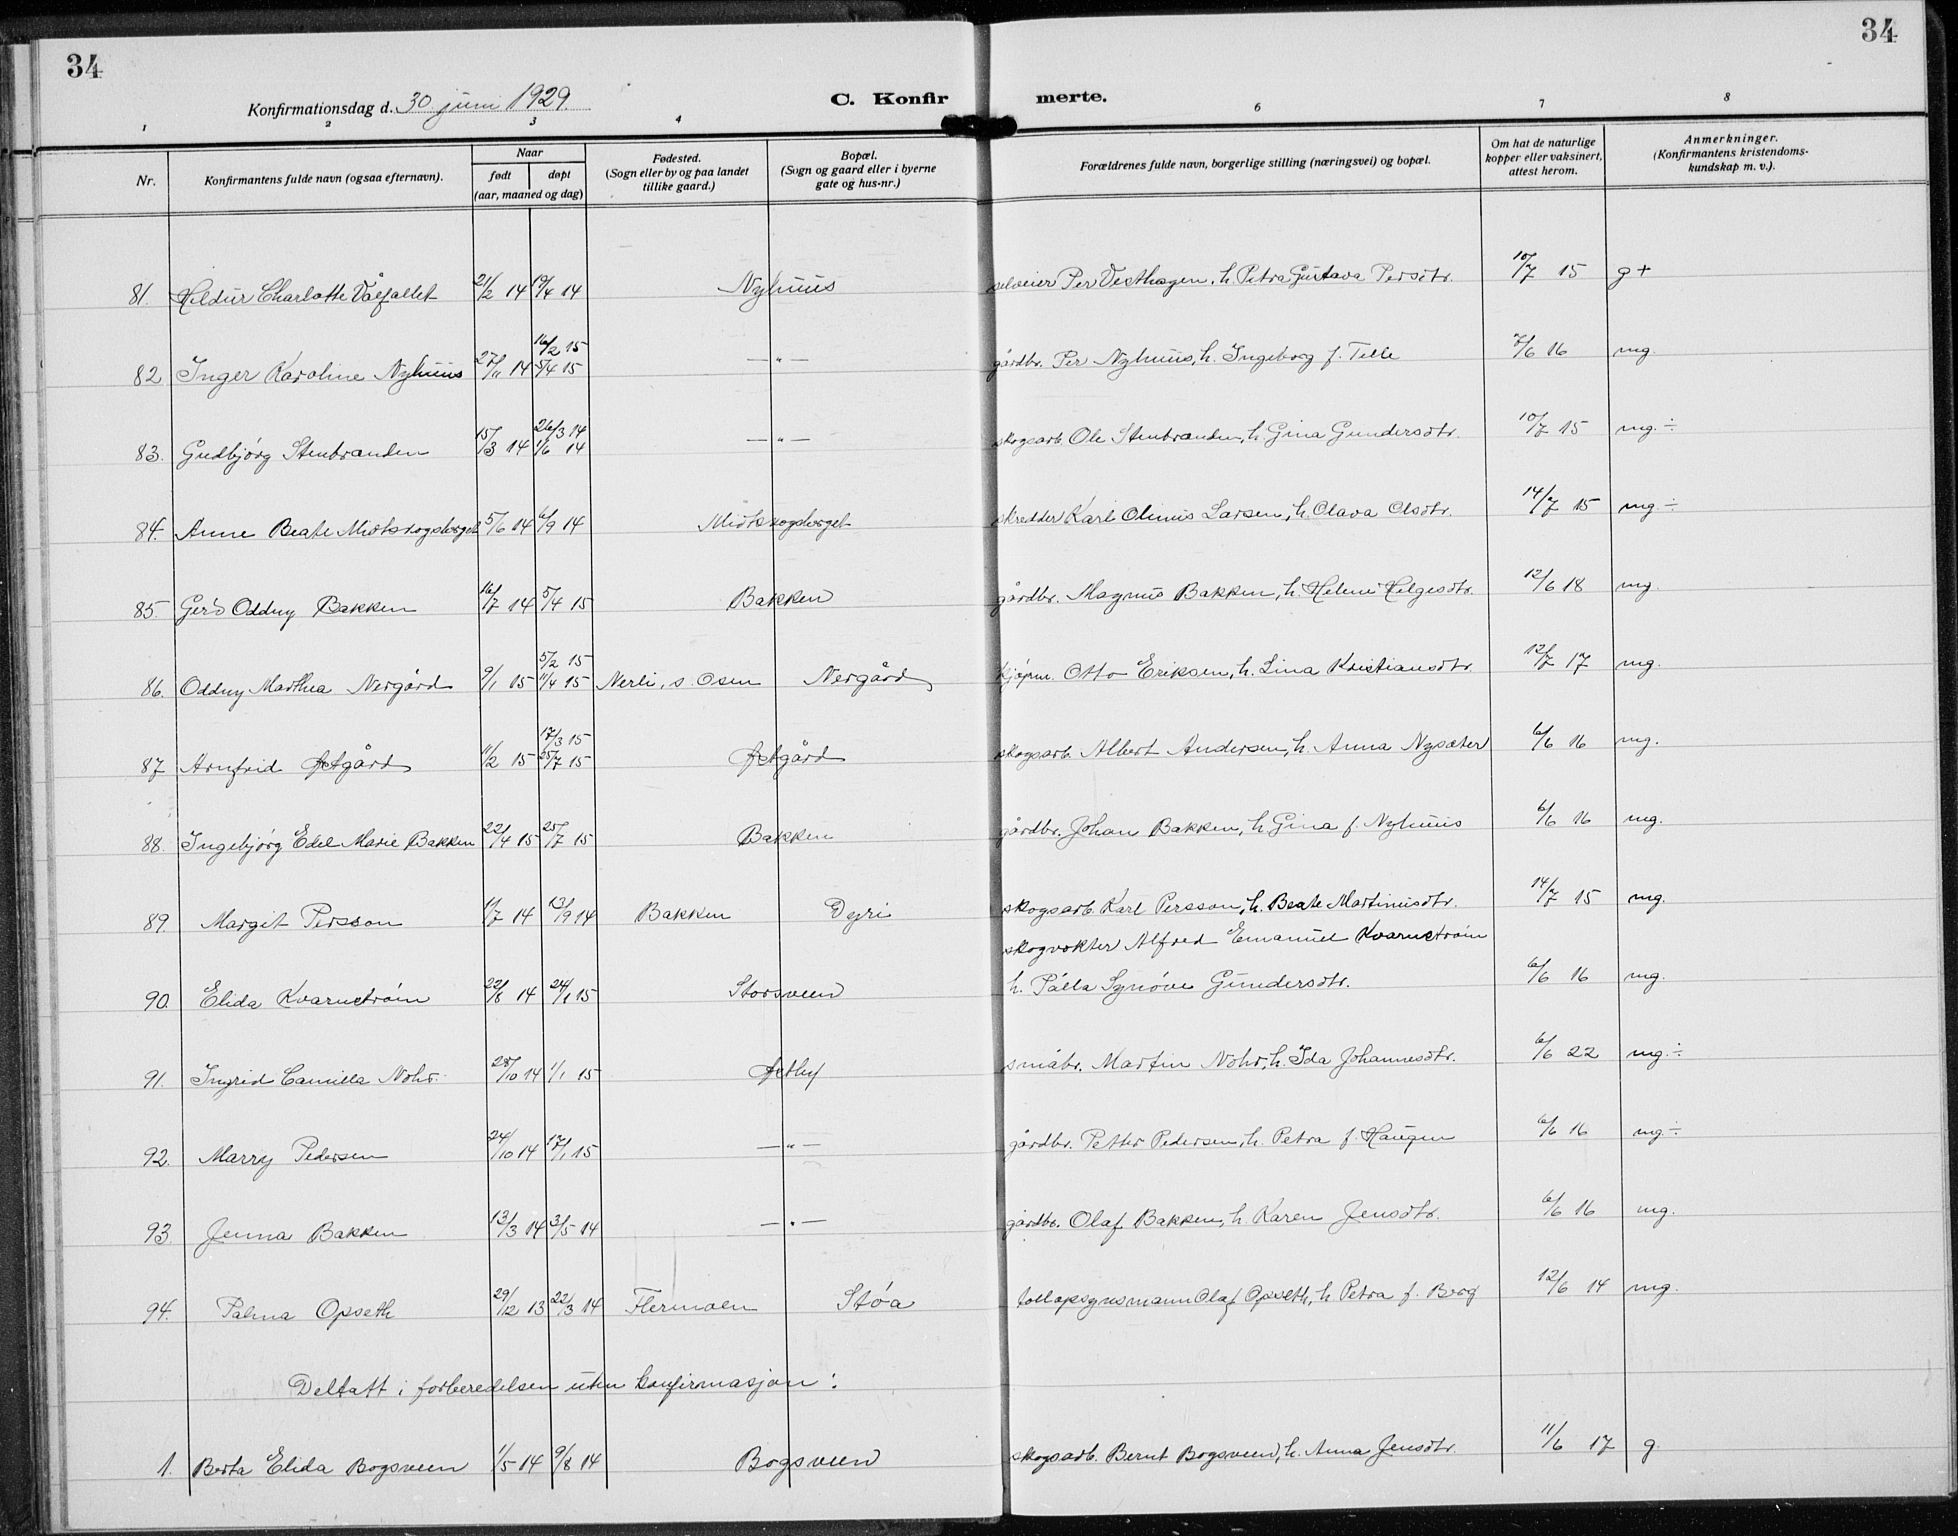 34
34
Konfirmationsdag d. 30 juni 1929.
C. Konfirmerte.
1 2 3 4 6 7 8
Nr.
Konfirmantens fulde navn (ogsaa efternavn).
Naar
født
døpt
(aar, maaned og dag)
Fødested.
(Sogn eller by og paa landet
tillike gaard.)
Bopæl.
(Sogn og gaard eller i byerne
gate og hus-nr.)
Forældrenes fulde navn, borgerlige stilling (næringsvei) og bopæl.
Om hat de naturlige
kopper eller vaksinert,
attest herom.
Anmerkninger.
(Konfirmantens kristendoms-
kundskap m. v.).
81. Hildur Charlotte Våfallet 21/2 14 19/4 14 Nyhuus selveier Per Vesthagen, h. Petra Gustava Persdtr. 10/7 15 g+
16/2 15
82. Inger Karoline Nyhuus 27/11 14 5/4 15 —"— gårdbr. Per Nyhuus, h. Ingeborg f. Telle 7/6 16 mg.
26/3 14
83. Gudbjørg Stenbranden 15/3 14 1/6 14 —"— skogsarb. Ole Stenbranden, h. Gina Gundersdtr. 10/7 15 mg.÷
84. Anne Beate Midtskogsberget 5/6 14 6/9 14 Midtskogsberget skredder Karl Olinus Larsen, h. Olava Olsdtr. 14/7 15 mg÷
85. Gerd Oddny Bakken 16/7 14 5/4 15 Bakken gårdbr. Magnus Bakken, h. Helene Helgesdtr. 12/6 18 mg.
5/2 15
86. Oddny Marthea Nergård 9/1 15 11/4 15 Nerli, s. Osen Nergård kjøpm. Otto Eriksen, h. Lina Kristiansdtr. 12/7 17 mg.
17/3 15
87. Arnfrid Øtgård 11/2 15 25/7 15 Øtgård skogsarb. Albert Andersen, h. Anna Nysæter 6/6 16 mg.
88. Ingebjørg Edel Marie Bakken 22/4 15 25/7 15 Bakken gårdbr. Johan Bakken, h. Gina f. Nyhuus 6/6 16 mg.
89. Margit Persson 11/7 14 13/9 14 Bakken Dyri skogsarb. Karl Persson, h. Beate Martinusdtr. 14/7 15 mg.
skogvokter Alfred Emanuel Kvarnstrøm
90. Elida Kvarnstrøm 22/8 14 24/1 15 Storsveen h. Pålla Synøve Gundersdtr. 6/6 16 mg.
91. Ingrid Camilla Nohr. 28/10 14 1/1 15 Øtby småbr. Martin Nohr, h. Ida Johannesdtr. 6/6 22 mg.÷
92. Marry Pedersen 24/10 14 17/1 15 —"— gårdbr. Petter Pedersen, h. Petra f. Haugen 6/6 16 mg.÷
93. Jenna Bakken 13/3 14 3/5 14 —"— gårdbr. Olaf Bakken, h. Karen Jensdtr. 6/6 16 mg.
94. Palma Opseth 29/12 13 22/3 14 Flermoen Støa tollopsynsmann Olaf Opseth, h. Petra f. Berg 12/6 14 mg.
Deltatt i forberedelsen uten konfirmasjon:
1. Berta Elida Bogsveen 1/5 14 9/8 14 Bogsveen skogsarb. Bernt Bogsveen, h. Anna Jensdtr. 11/6 17 g.